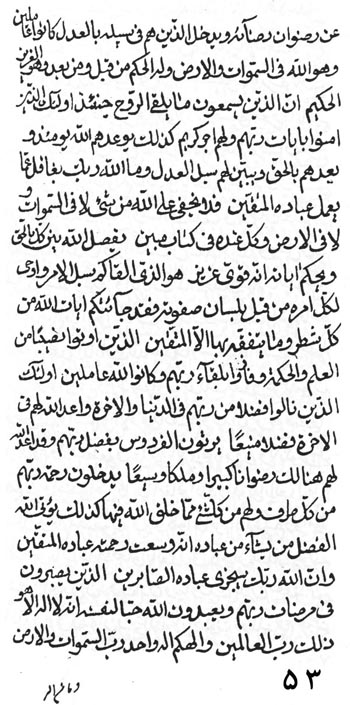 عن رضوان رضائه ويدخل الذين هم فى سبيله بالعدل كانوا عاملين
وهو الله فى السموات والارض وله الحكم من قبل ومن بعد وهو العزيز
الحكيم انّ الذين يسمعون ما يلقى الروح حينئذ اولئك الذين
امنوا بايات ربهم ولهم اجر كريم كذلك يوعدهم الله يومئذ و
يعدهم بالحق ويبين لهم سبل العدل وما الله ربك بغافل عما
يعمل عباده المتقين قد لا يخفى على الله من شئ لا فى السموات و
لا فى الارض وكل عنده فى كتاب مبين يفصل الله بين كل بالحق
ويحكم اياته انه قوى عزيز هو الذى القاكم سبل الامر واوحى
لكل امره من قبل بلسان صفوته وقد جائتكم ايات الله من
كل شطر وما يتفقه بها الا المتقين الذين اوتوا نصيبا من
العلم والحكمة وفازوا بلقاء ربهم وكانوا لله عاملين اولئك
الذين نالوا فضلا من ربهم فى الدنيا والاخرة واعد الله لهم فى
الاخرة فضلا منيعا يرثون الفردوس بفضل ربهم وقد اعد الله
لهم هنالك رضوانا كبيرا وملكا وسيعا يدخلون رحمة ربهم
من كل طرف ولهم من كل شئ مما خلق الله فيها كذلك يؤتى الله
الفضل من يشاء من عباده انه وسعت رحمته عباده المتقين
وان الله ربك سيجزى عباده الصابرين الذين يصبرون
فى مرضات ربهم ويعبدون الله حبا لنفسه انه لا اله الا هو
ذلك رب العالمين والهكم اله واحد رب السموات والارض
۵۳